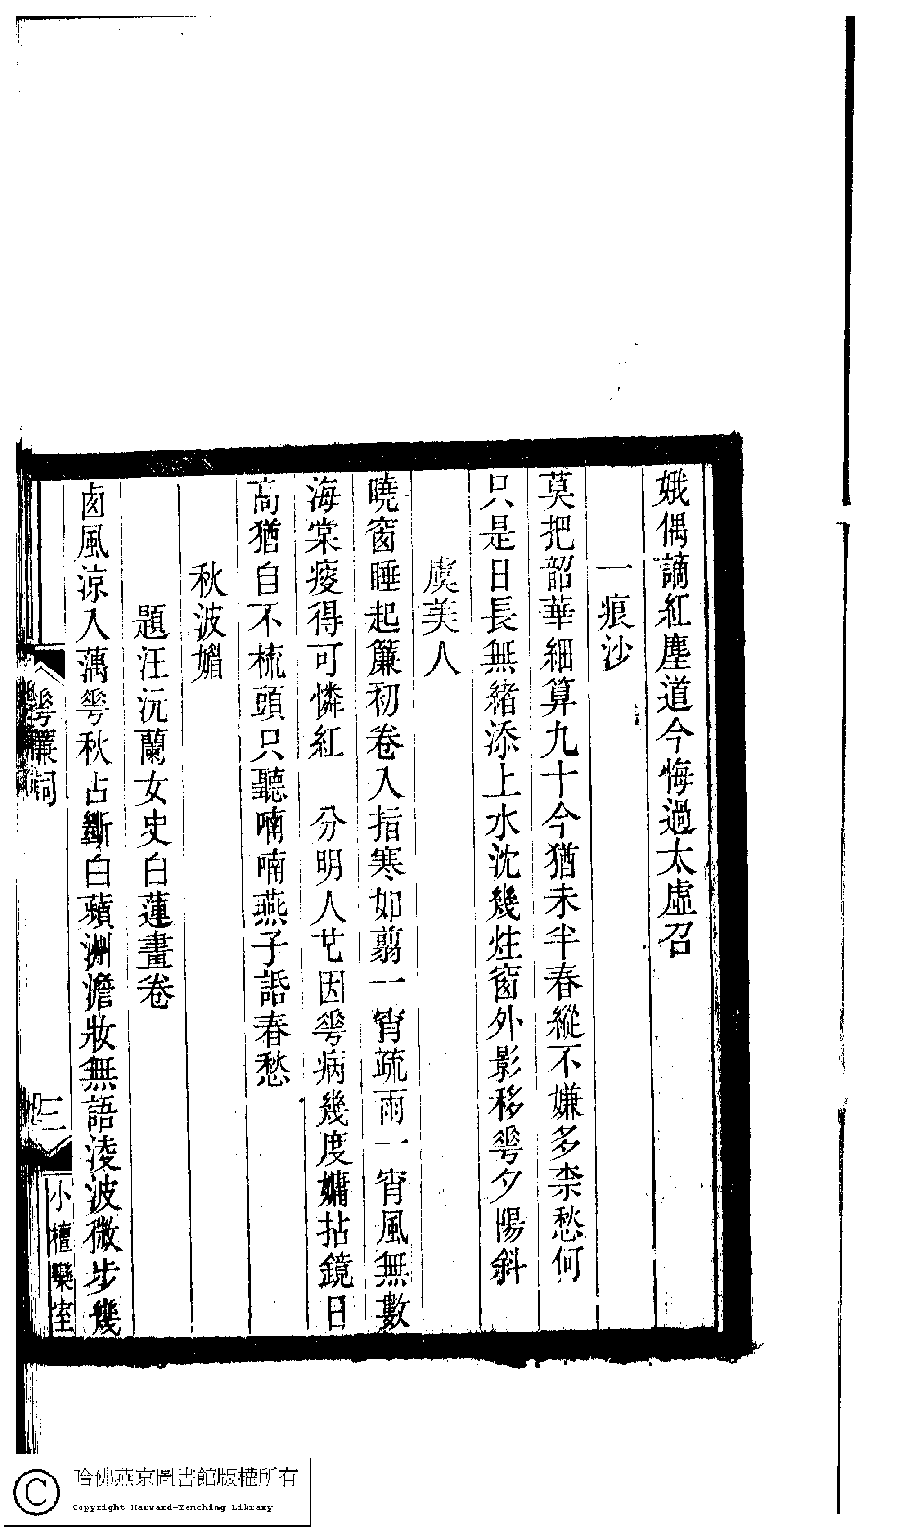 娥偶謫紅塵道今悔過太虛召
一痕沙
莫把韶華細算九十今猶未半春縱不嫌多柰愁何
只是日長無緒添上水沈幾炷窗外影移蕚夕陽斜
虞美人
曉窗睡起簾初卷入指寒如翦一宵疏雨一宵風無數
海棠瘦得可憐紅　分明人也因蕚病幾度慵拈鏡日
高猶自不梳頭只聽喃喃燕子話春愁
秋波媚
題汪沅蘭女史白蓮畫卷
鹵風涼入藕蕚秋占斷白蘋洲澹妝無語淩波微步幾
蕚簾詞
三
小檀欒室
哈佛燕京圖書館版權所有
Copyright Harvard-Yenching Library